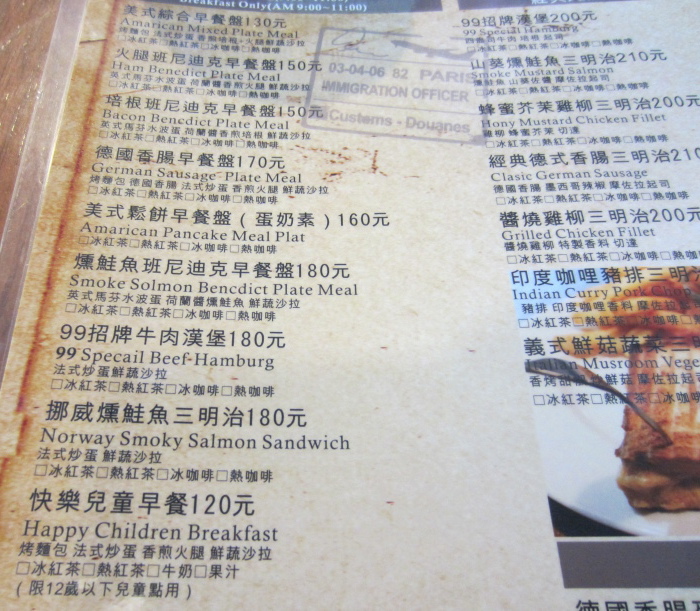 Breakfast Only(AM 9:00~11:00)
美式綜合早餐盤130元
Amarican Mixed Plate Meal
烤麵包 法式炒蛋 香煎培根+火腿鮮蔬沙拉
□冰紅茶□熱紅茶□冰咖啡□熱咖啡
火腿班尼迪克早餐盤150元
Ham Benedict Plate Meal
英式馬芬水波蛋 荷蘭醬香煎火腿 鮮蔬沙拉
□冰紅茶□熱紅茶□冰咖啡□熱咖啡
培根班尼迪克早餐盤150元
Bacon Bencdict Plate Meal
英式馬芬水波蛋 荷蘭醬香煎培根 鮮蔬沙拉
□冰紅茶□熱紅茶□冰咖啡□熱咖啡
德國香腸早餐盤170元
German Sausage Plate Meal
烤麵包 德國香腸 法式炒蛋 香煎火腿 鮮蔬沙拉
□冰紅茶□熱紅茶□冰咖啡□熱咖啡
美式鬆餅早餐盤(蛋奶素)160元
Amarican Pancake Meal Plat
□冰紅茶□熱紅茶□冰咖啡□熱咖啡
燻鮭魚班尼迪克早餐盤180元
Smoke Solmon Bencdict Plate Meal
英式馬芬水波蛋 荷蘭醬燻鮭魚 鮮蔬沙拉
□冰紅茶□熱紅茶□冰咖啡□熱咖啡
99招牌牛肉漢堡180元
99 Specail Beef-Hamburg
法式炒蛋鮮蔬沙拉
□冰紅茶□熱紅茶□冰咖啡□熱咖啡
挪威燻鮭魚三明治180元
Norway Smoky Salmon Sandwich
法式炒蛋 鮮蔬沙拉
□冰紅茶□熱紅茶□冰咖啡□熱咖啡
快樂兒童早餐120元
Happy Children Breakfast
烤麵包 法式炒蛋 香煎火腿 鮮蔬沙拉
□冰紅茶□熱紅茶□牛奶□果汁
(限12歲以下兒童點用)
03-04-06 82 PARIS
IMMIGRATION OFFICER
Customs - Douanes
99招牌漢堡200元
99 Special Hamburg
□冰紅茶□熱紅茶□冰咖啡□熱咖啡
山葵燻鮭魚三明治210元
Smoke Mustard Salmon
燻鮭魚 山葵佐醬 摩佐拉起司
□冰紅茶□熱紅茶□冰咖啡□熱咖啡
蜂蜜芥茉雞柳三明治200元
Hony Mustard Chicken Fillet
雞柳 蜂蜜芥茉 切達
□冰紅茶□熱紅茶□冰咖啡□熱咖啡
經典德式香腸三明治210
Clasic German Sausage
德國香腸 墨西哥辣椒 摩佐拉起司
□冰紅茶□熱紅茶□冰咖啡□熱咖啡
醬燒雞柳三明治200元
Grilled Chicken Fillet
醬燒雞柳 特製香料 切達
□冰紅茶□熱紅茶□冰咖啡□熱咖
印度咖哩豬排三明治
Indian Curry Pork Chop
豬排 印度咖哩香料 摩佐拉
□冰紅茶□熱紅茶□冰咖啡□熱咖
義式鮮菇蔬菜三明
Italian Musroom Vege
香烤甜椒 鮮菇 摩佐拉起
□冰紅茶□熱紅茶□冰咖
德國香腸